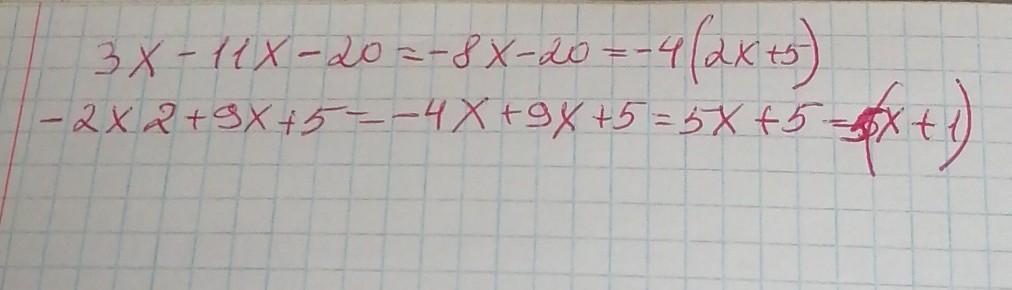 3x-11x-20=-8x-20=-4(2x+5)
-2x2+9x+5=-4x+9x+5=5x+5=5(x+1)